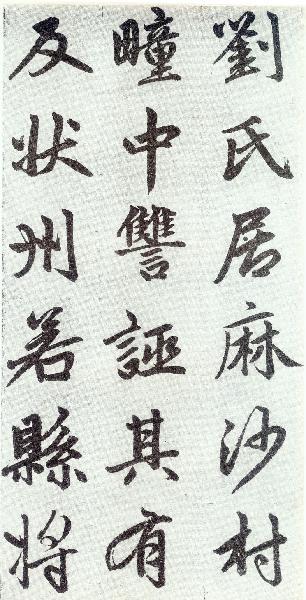 劉氏居麻沙村
疃中讐誣其有
反状州若縣将